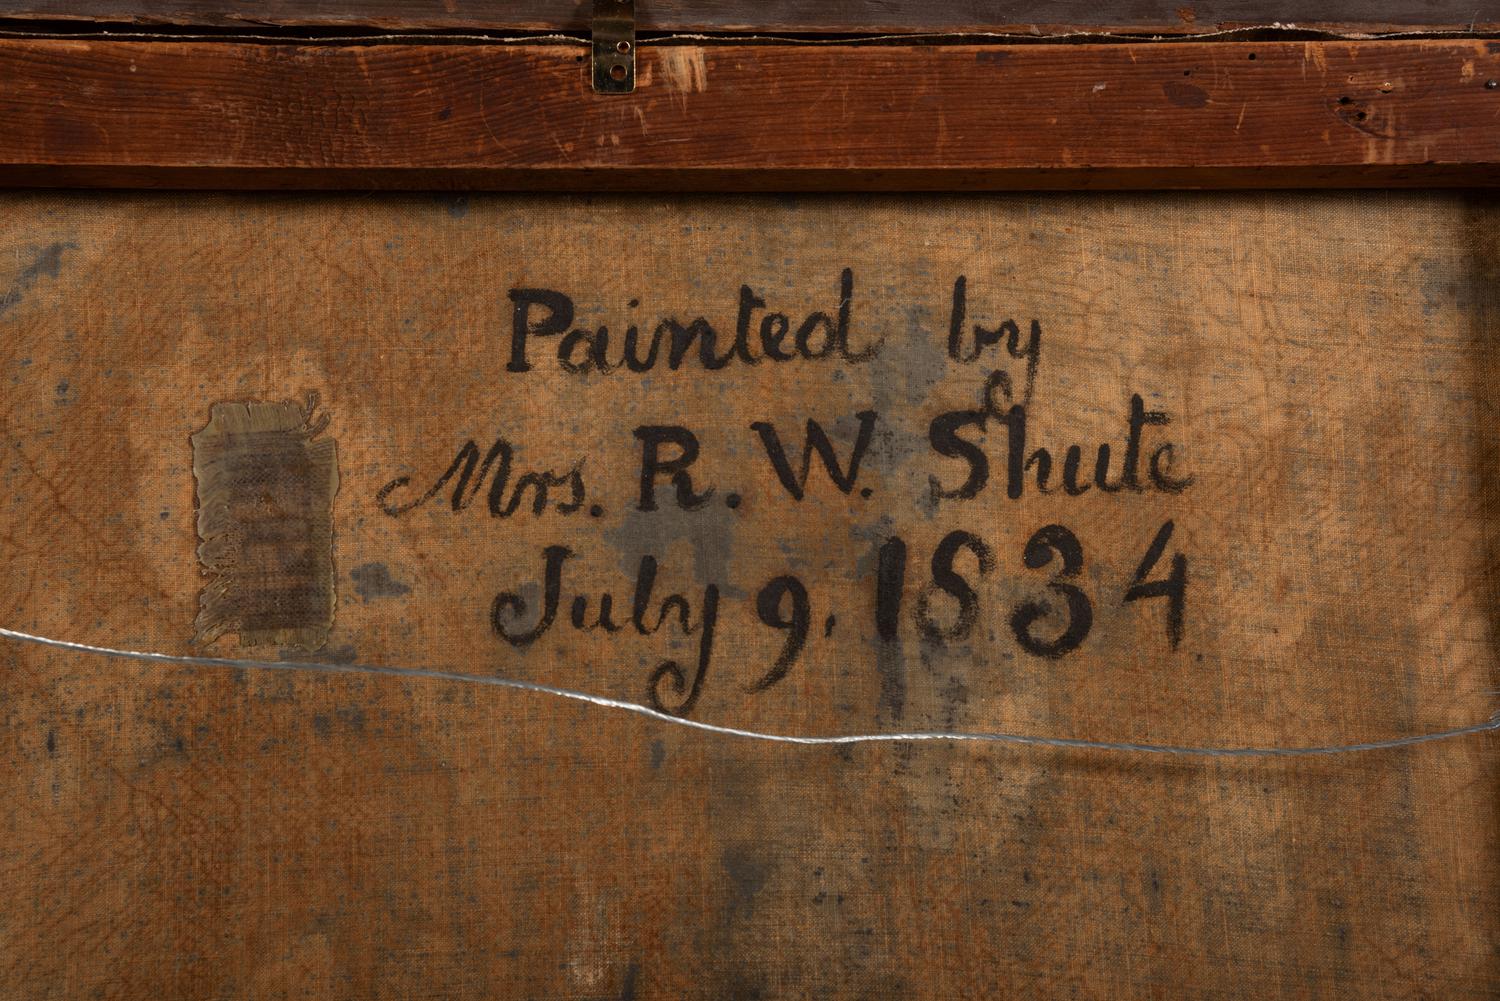 Painted by
Mrs. R. W. Shute
July 9, 1834